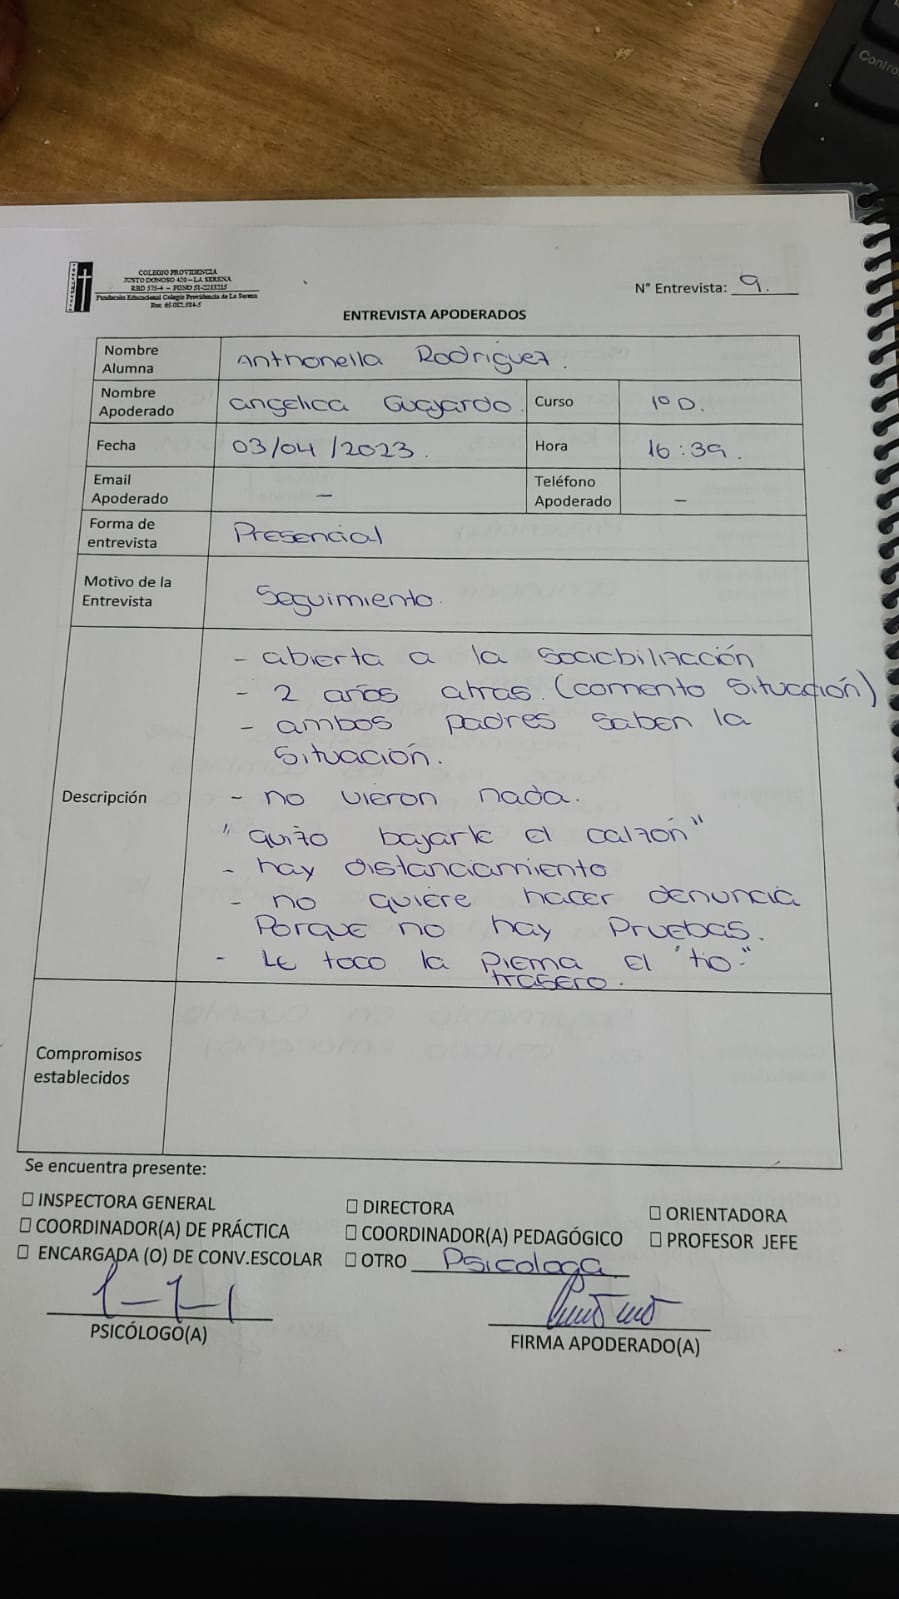 Contro
COLEGIO PROVIDENCIA
JUSTO DONOSO 420 – LA SERENA
RBD 575-4 – FONO 51-2215215
Fundación Educacional Colegio Providencia de La Serena
N° Entrevista: 9.
ENTREVISTA APODERADOS
Nombre Alumna Anthonella Rodriguez.
Nombre Apoderado angelica Guajardo. Curso 1° D.
Fecha 03/04/2023. Hora 16:39.
Email Apoderado – Teléfono Apoderado –
Forma de entrevista Presencial
Motivo de la Entrevista Seguimiento.
Descripción
- abierta a la sociabilización
- 2 años atras. (comento situación)
- ambos padres saben la
situación.
- no vieron nada.
"quizo bajarle el calzón"
- hay distanciamiento
- no quiere hacer denuncia
Porque no hay Pruebas.
- Le toco la pierna el "tio."
trasero.
Compromisos establecidos
Se encuentra presente:
☐ INSPECTORA GENERAL ☐ DIRECTORA ☐ ORIENTADORA
☐ COORDINADOR(A) DE PRÁCTICA ☐ COORDINADOR(A) PEDAGÓGICO ☐ PROFESOR JEFE
☐ ENCARGADA (O) DE CONV.ESCOLAR ☐ OTRO Psicologa
PSICÓLOGO(A)
FIRMA APODERADO(A)